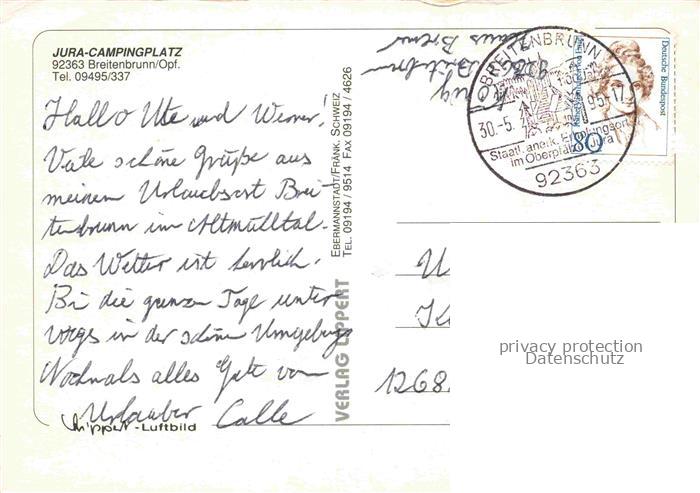 JURA-CAMPINGPLATZ
92363 Breitenbrunn/Opf.
Tel. 09495/337
Hallo Ute und Werner,
Viele schöne Grüße aus
meinem Urlaubsort Brei-
tenbrunn im Altmühltal.
Das Wetter ist herrlich.
Bin die ganzen Tage unter
wegs in der schönen Umgebung
Nochmals alles Gute vom
Urlauber Calle
Lippert-Luftbild
VERLAG LIPPERT
EBERMANNSTADT/FRÄNK. SCHWEIZ
TEL. 09194 / 9514 FAX 09194 / 4626
BREITENBRUNN
30.-5.
95-17
Staatl. anerk. Erholungsort
im Oberpfälzer Jura
92363
Deutsche Bundespost
80
U
K
1268
privacy protection
Datenschutz